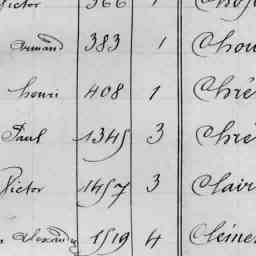 Victor 366 1
Armand 383 1 Chou
henri 408 1 Chré
Paul 1345 3 Chré
Victor 1457 3 Clair
Alexandre 1519 4 Clémen